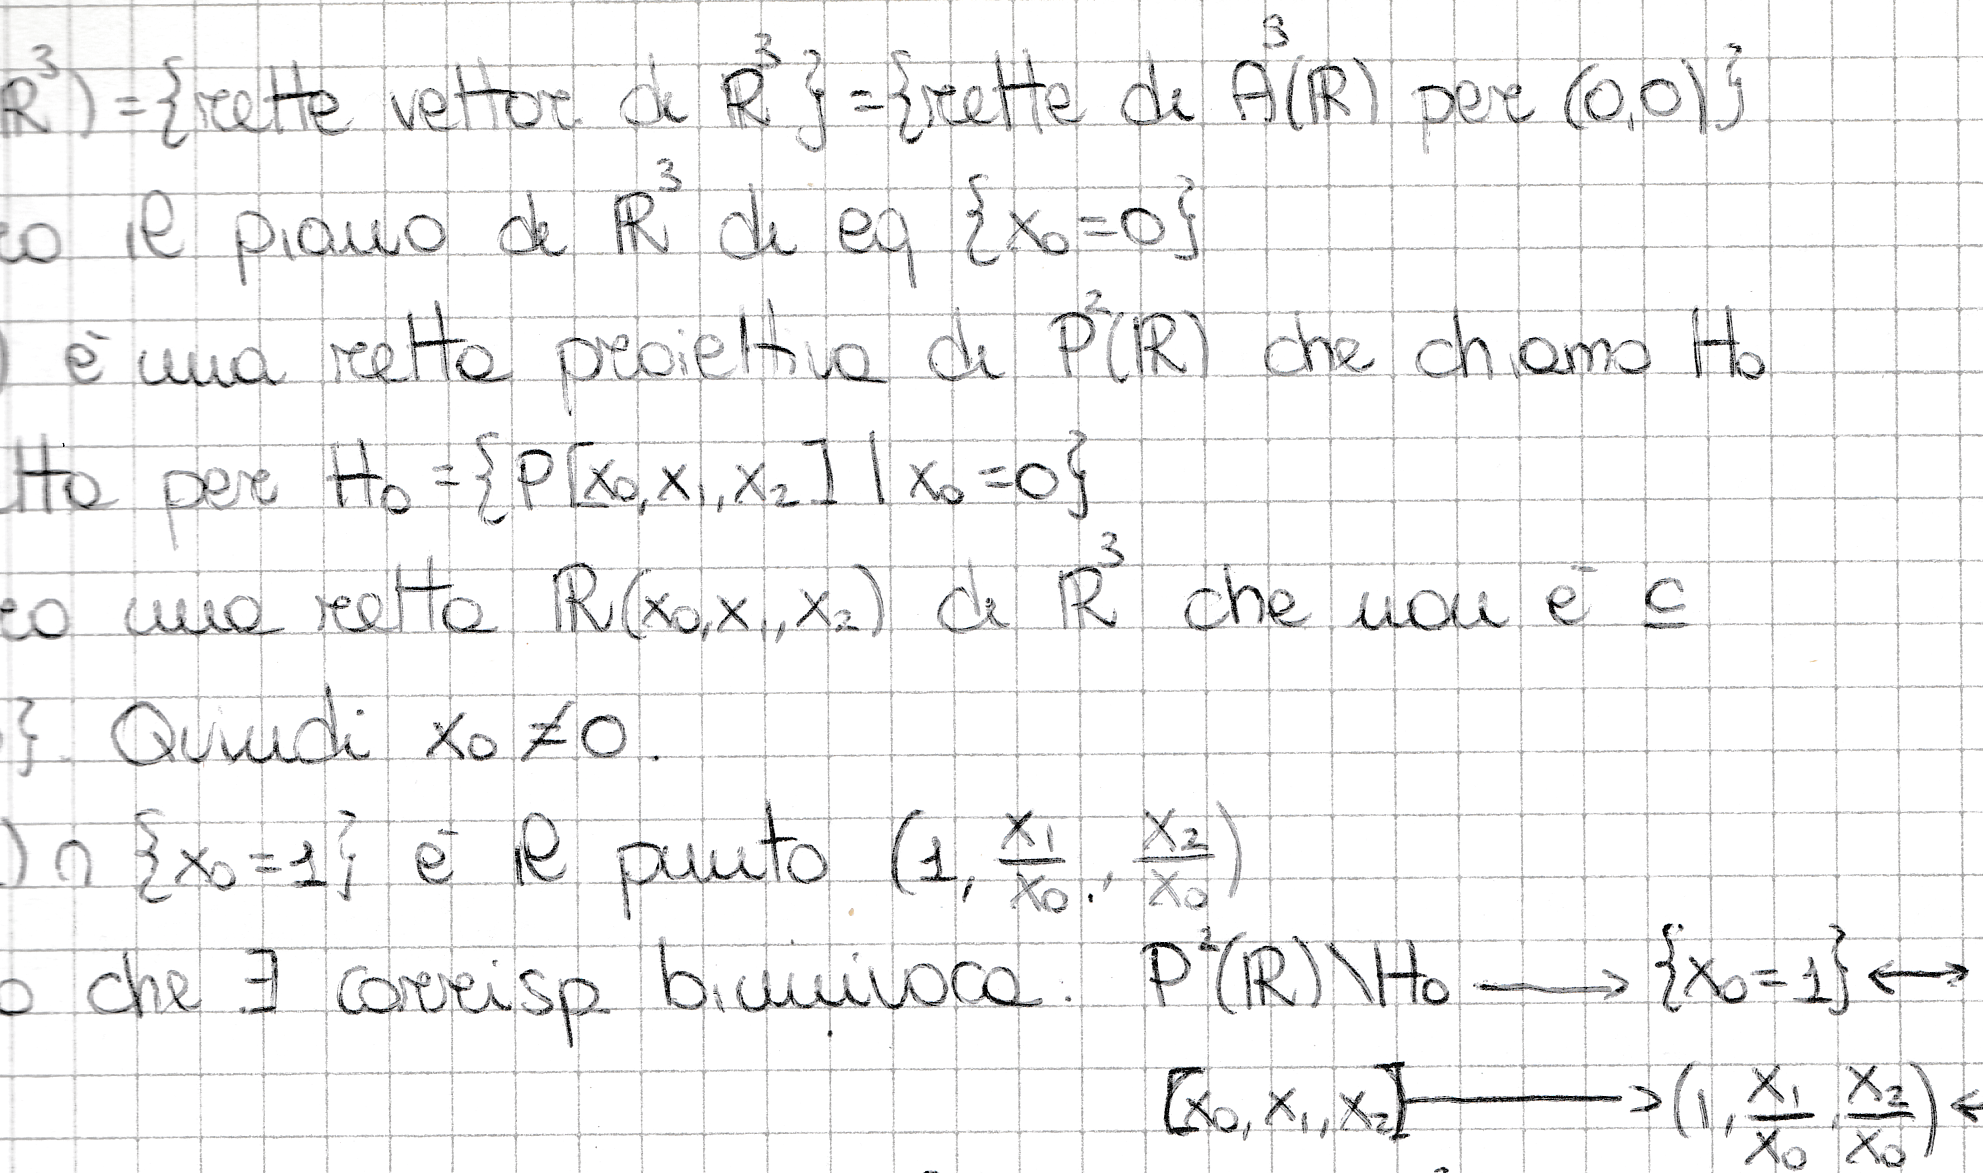 R³) = {rette vettor di R³} = {rette di A³(R) per (0,0)}
co il piano di R³ di eq {x₀=0}
) è una retta proiettiva di P²(R) che chiamo H₀
tta per H₀ = {P[x₀,x₁,x₂] | x₀=0}
co una retta R(x₀,x₁,x₂) di R³ che non è ⊆
}. Quindi x₀ ≠ 0.
) ∩ {x₀=1} è il punto (1, x₁/x₀, x₂/x₀)
o che ∃ corrisp biunivoca. P²(R)\H₀ ⟶ {x₀=1} ⟷
[x₀,x₁,x₂] ⟶ (1, x₁/x₀, x₂/x₀) ←